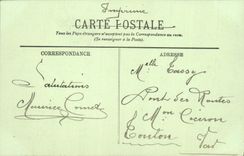 Imprimé
CARTE POSTALE
Tous les Pays étrangers n'acceptent pas la Correspondance au recto.
(Se renseigner à la Poste).
CORRESPONDANCE
ADRESSE
Salutations
Maurice
Mlle
Pont des Routes
Mon
Toulon
Var